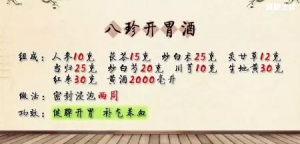 八珍开胃酒
组成：人参10克 茯苓15克 炒白术25克 炙甘草12克
当归25克 炒白芍20克 川芎10克 生地黄30克
红枣30克 黄酒2000毫升
做法：密封浸泡两周
功效：健脾开胃 补气养血